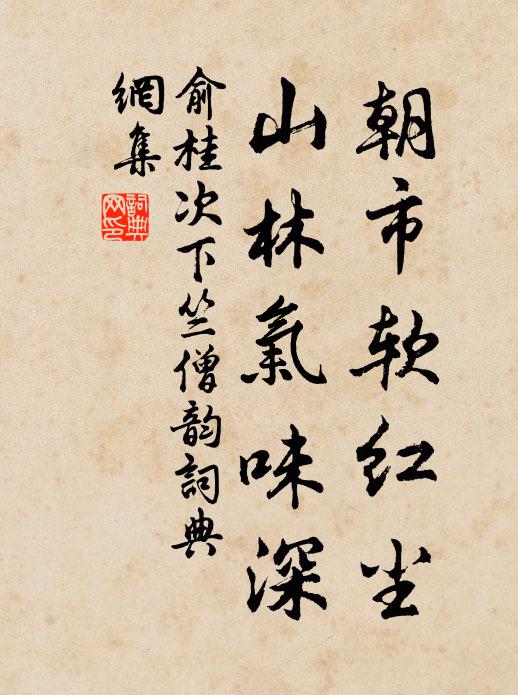 朝市软红尘
山林氣味深
俞桂次下竺僧韵詞典
網集
詞典
网印